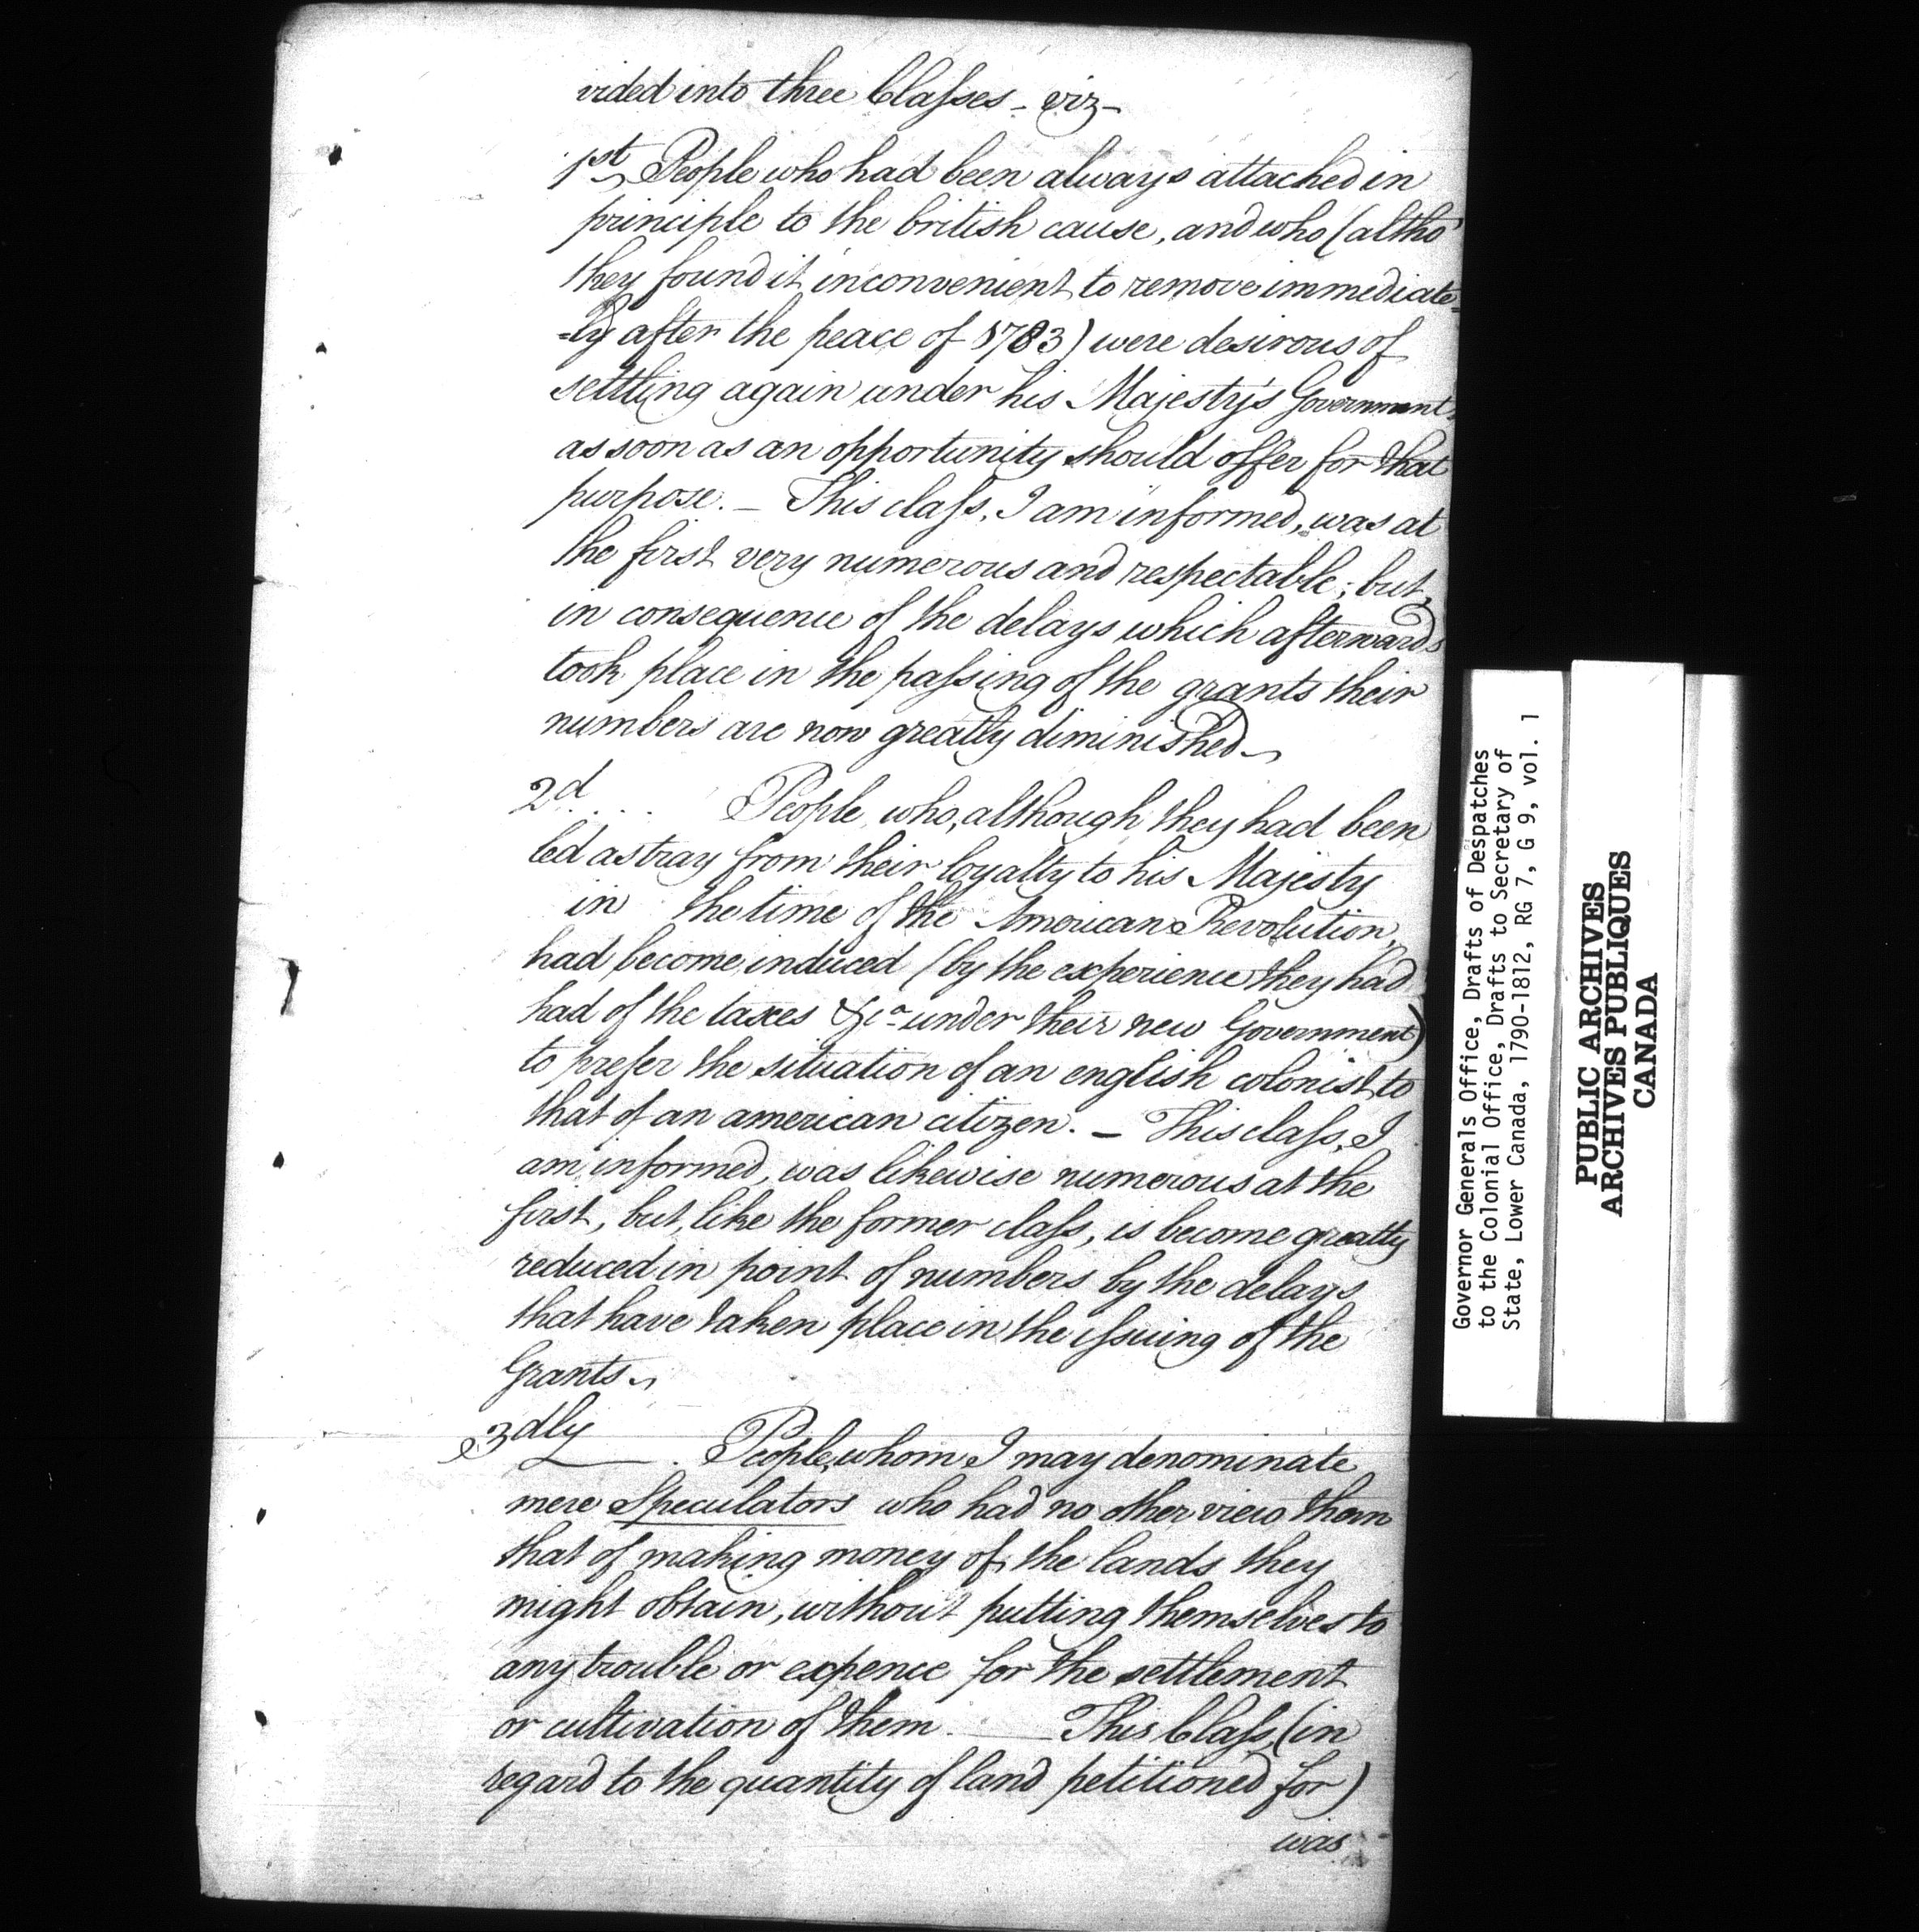 vided into three Classes - viz -
1st People who had been always attached in
principle to the british cause, and who (altho'
they found it inconvenient to remove immediate-
-ly after the peace of 1783) were desirous of
settling again under his Majesty's Government,
as soon as an opportunity should offer for that
purpose. — This class, I am informed, was at
the first very numerous and respectable; but,
in consequence of the delays which afterwards
took place in the passing of the grants their
numbers are now greatly diminished
2d. . . People who, although they had been
led astray from their loyalty to his Majesty
in the time of the American Revolution,
had become induced (by the experience they had
had of the taxes &ca under their new Government)
to prefer the situation of an english colonist to
that of an american citizen. — This class, I
am informed, was likewise numerous at the
first, but, like the former class, is become greatly
reduced in point of numbers by the delays
that have taken place in the issuing of the
Grants
3dly. People, whom I may denominate
mere Speculators who had no other view than
that of making money of the lands they
might obtain, without putting themselves to
any trouble or expence for the settlement
or cultivation of them. — This Class, (in
regard to the quantity of land petitioned for)
was
Governor Generals Office, Drafts of Despatches
to the Colonial Office, Drafts to Secretary of
State, Lower Canada, 1790-1812, RG 7, G 9, vol. 1
PUBLIC ARCHIVES
ARCHIVES PUBLIQUES
CANADA